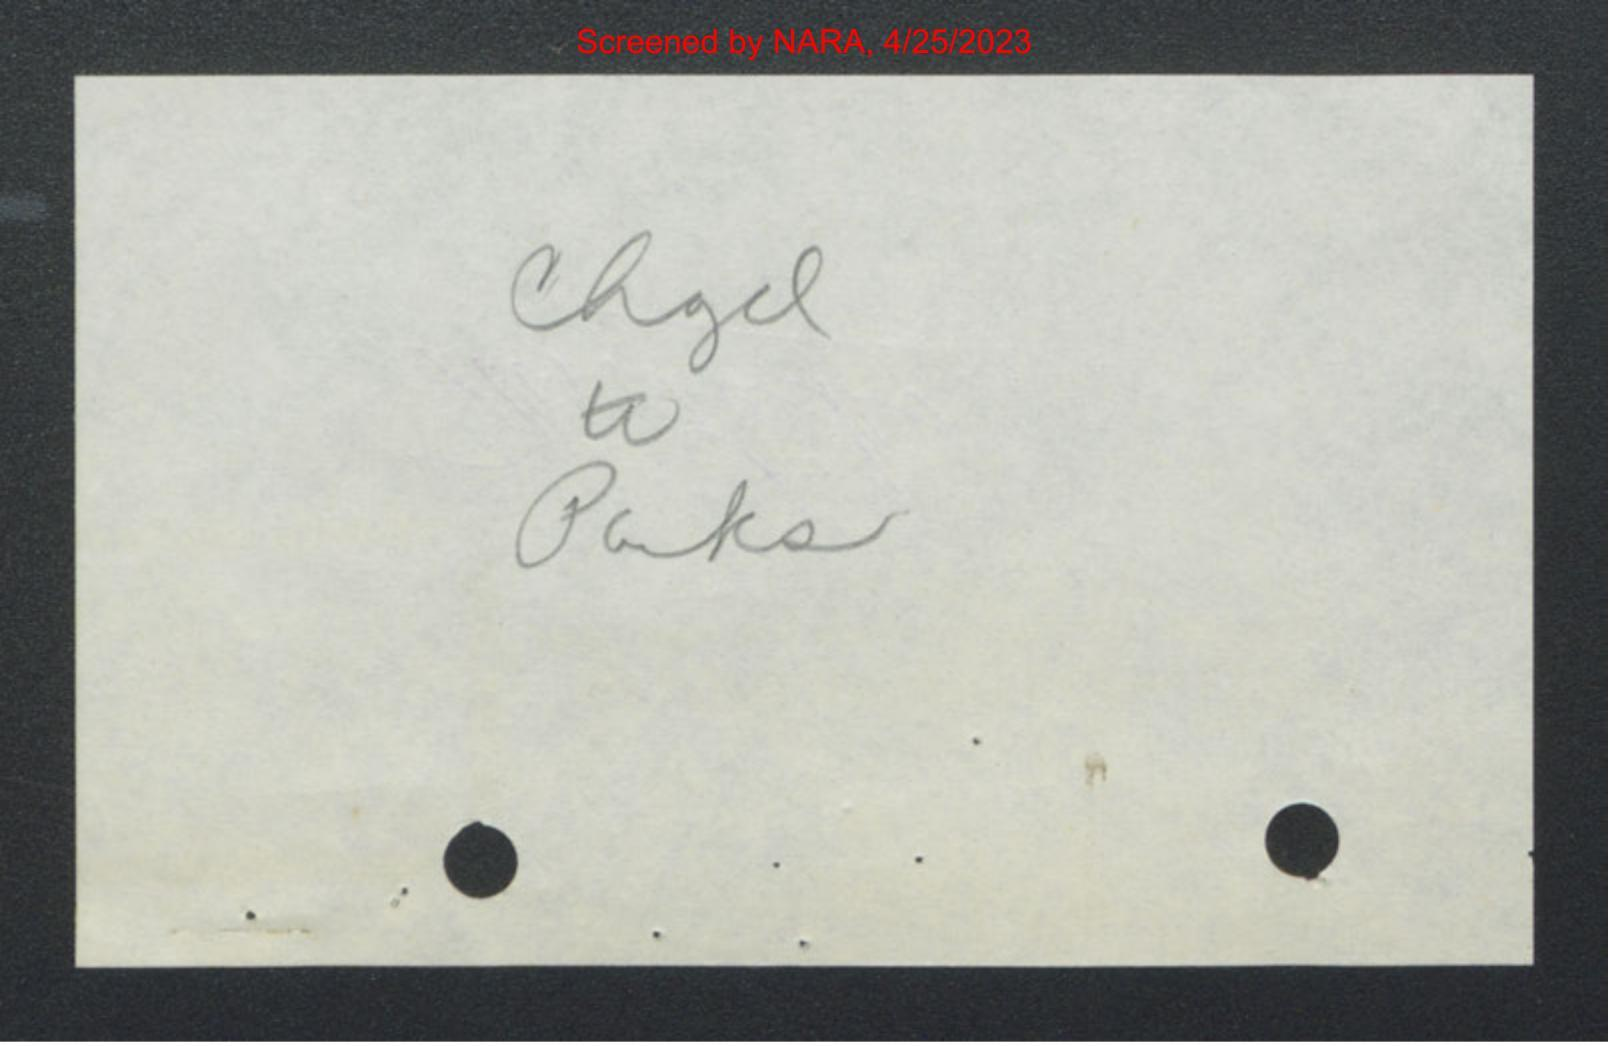 Screened by NARA, 4/25/2023
Chgd
to
Parks